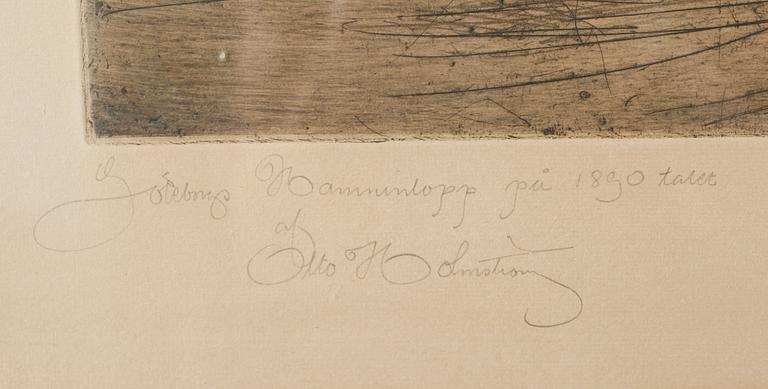 Göteborgs Hamninlopp på 1890 talet
af
Otto Holmström